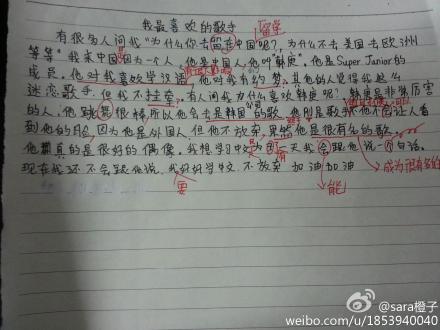 我最喜欢的歌手
留学
有很多人问我"为什么你去留在中国呢?为什么不去美国去欧洲
等等"我来中国因为一个人,他是中国人,他叫"韩庚"。他是Super Junior的
成员。他对我喜欢学汉语,他对我有约梦。其他的人觉得我这么
迷恋歌手。但我不在乎。有人问我为什么喜欢韩庚呢?韩庚是非常厉害
的人,他跳舞很棒所以他会去韩国的歌
到他的脸,因为他是外国人但他不放弃。果然他是很有名的歌
他真的是很好的偶像。我想学习中文为有一天我会跟他说一个句话。
成为很有名的
现在我还不会跟他说,我好好学中文,不放弃 加油加油
要
能
@sara橙子
weibo.com/u/1853940040